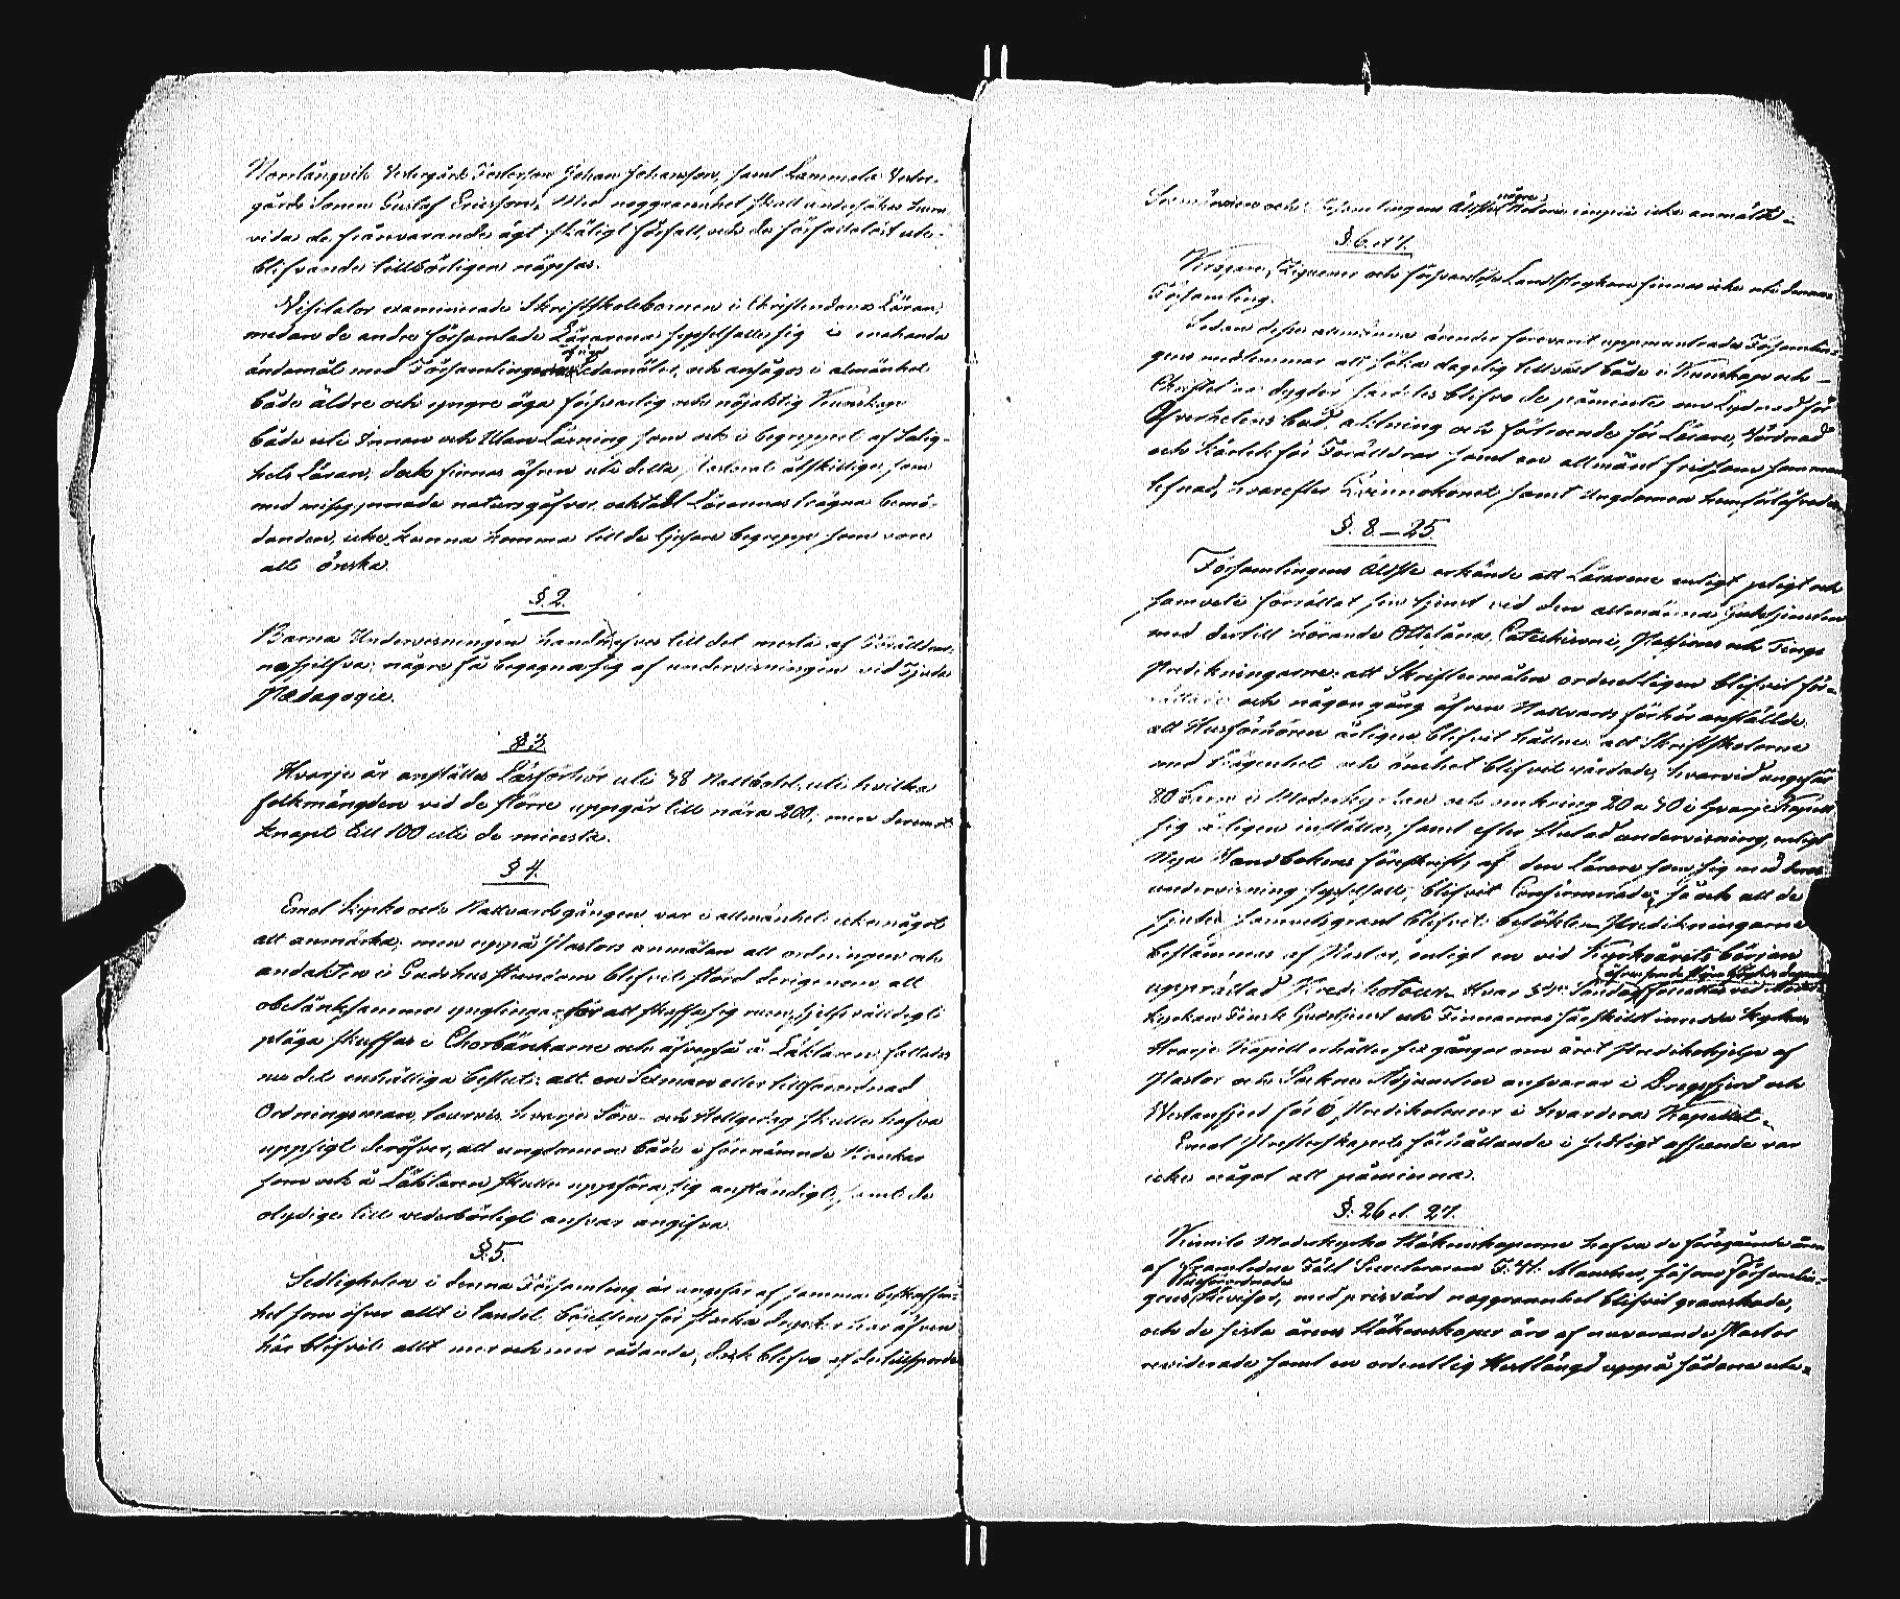 Norrlångvik Vestergårds Torkesson Johan Johansson, samt Lammala Vester-
gårds Sonen Gustaf Ericsson. Med noggrannhet skall undersökas huru-
vida de frånvarande ägt skäligt förfall, och de förfallolöst ute-
blifvande tillbörligen näpsas.
Visitator examinerade Skriftskolebarnen i Christendoms Läran,
medan de andre församlade Lärarena sysselsatte sig i enahanda
ändamål med Församlingens öfrige Ledamöter, och ansågos i almänhet
både äldre och yngre äga försvarlig och nöjaktig Kunskap
både uti Innan och Utan Läsning som och i begreppet af Salig-
hets Läran, dock finnas äfven uti detta Pastorat åtskillige, som
med missgynnade naturs gåfvor, oaktadt Lärarnas trägna bemö-
danden, icke kunna komma till de ljusare begrepp som vore
att önska.
§. 2.
Barna Undervisningen handhafves till det mesta af Föräldrar-
na sjelfva: några få begagna sig af undervisningen vid Tjuda
Pædagogie.
§ 3
Hvarje år anställes Läsförhör uti 48 Matlagsl. uti hvilka
folkmängden vid de större uppgår till nära 200, men deremot
knapt till 100 uti de minsta.
§ 4.
Emot Kyrko och Nattvardsgången var i allmänhet icke något
att anmärka; men uppå Pastors anmälan att ordningen och
andakten i Gudshus stundom blifvit störd derigenom, att
obetänksamme ynglingar för att skaffa sig rum, sjelfrådigt
pläga skuffas i Chorbänkarne och äfvenså å Läktaren, fattades
nu det enhälliga beslut: att en Sexman eller tillförordnad
Ordningsman, tourvis, hvarje Sön- och Helgedag skulle hafva
uppsigt deröfver, att ungdomen både i förenämnde bänkar
som och å Läktaren skulle uppföra sig anständigt, samt de
olydige till vederbörligt ansvar angifva.
§. 5.
Sedligheten i denna Församling är ungefär af samma beskaffen-
het som öfver allt i landet, begären för starka drycker har äfven
här blifvit allt mer och mer rådande, dock blefvo af
Sexmännen och Församlingens Äldste några Nolorie inpiæ icke anmälte
§. 6. et 7.
Virogare, Ziguenare och försvarslöse Landstrykare finnas icke uti denna
Församling.
Sedan desse almänna ärender förevarit uppmuntrades Församlin-
gens medlemmar att söka dagelig tillväxt både i Kunskap och
Christelige dygder, särdeles blifvo de påminte om Lydnad för
Öfverhetens bud, aktning och förtroende för Lärare, Vördnad
och Kärlek för Föräldrar samt en allmänt fridsam samman
lefnad, hvarefter Qvinnokönet samt Ungdomen hemförlofvades.
§. 8 – 25.
Församlingens Äldste erkände att Lärarene enligt pligt och
samvete förrättat sin tjenst vid den allmänna Gudstjensten
med dertill hörande Ottesång, Catechismi, Passions och Tings
Predikningarne: att Skriftermålen ordentligen blifvit för-
rättade och någon gång äfven Nattvards förhör anställde.
att Husförhören årligen blifvit hållne: att Skriftskolorne
med trägenhet och ömhet blifvit vårdade, hvarvid ungefär
80 barn i Moderkyrkan och omkring 20 a 40 i hvarje Kapell
sig årligen inställas, samt efter slutad undervisning, enligt
Nya Handbokens föreskrift, af den Lärare som sig med deras
undervisning sysselsatt, blifvit Confirmerade; så och att de
sjuka samvetsgrant blifvit besökte. Predikningarne
bestämmes af Pastor, enligt en vid Kyrkoårets början
upprättad Predikotour. Hvar 3dje Söndag förrättas vid Moder-
kyrkan Finsk Gudstjenst och Finnarnes Särskildt inne i Kyrkan.
Hvarje Kapell erhåller sex gånger om året Predikohjelp af
Pastor och Sockne Adjuncten ansvarar i Dragsfjerd och
Vestanfjerd för 6 Predikoturer i hvardera Kapellet.
Emot Presterskapets förhållande i sedligt afseende var
icke något att påminna.
§. 26 et 27.
Kimito Moderkyrka Räkenskaperne hafva de föregående åren
af framledne Tull Sekreteraren T. H. Munster, såsom Församlin-
gens tillförordnade Revisor, med prisvärd noggrannhet blifvit granskade,
och de sista årens Räkenskaper äro af nuvarande Pastor
reviderade samt en ordentlig Restlängd uppå sådane ute-